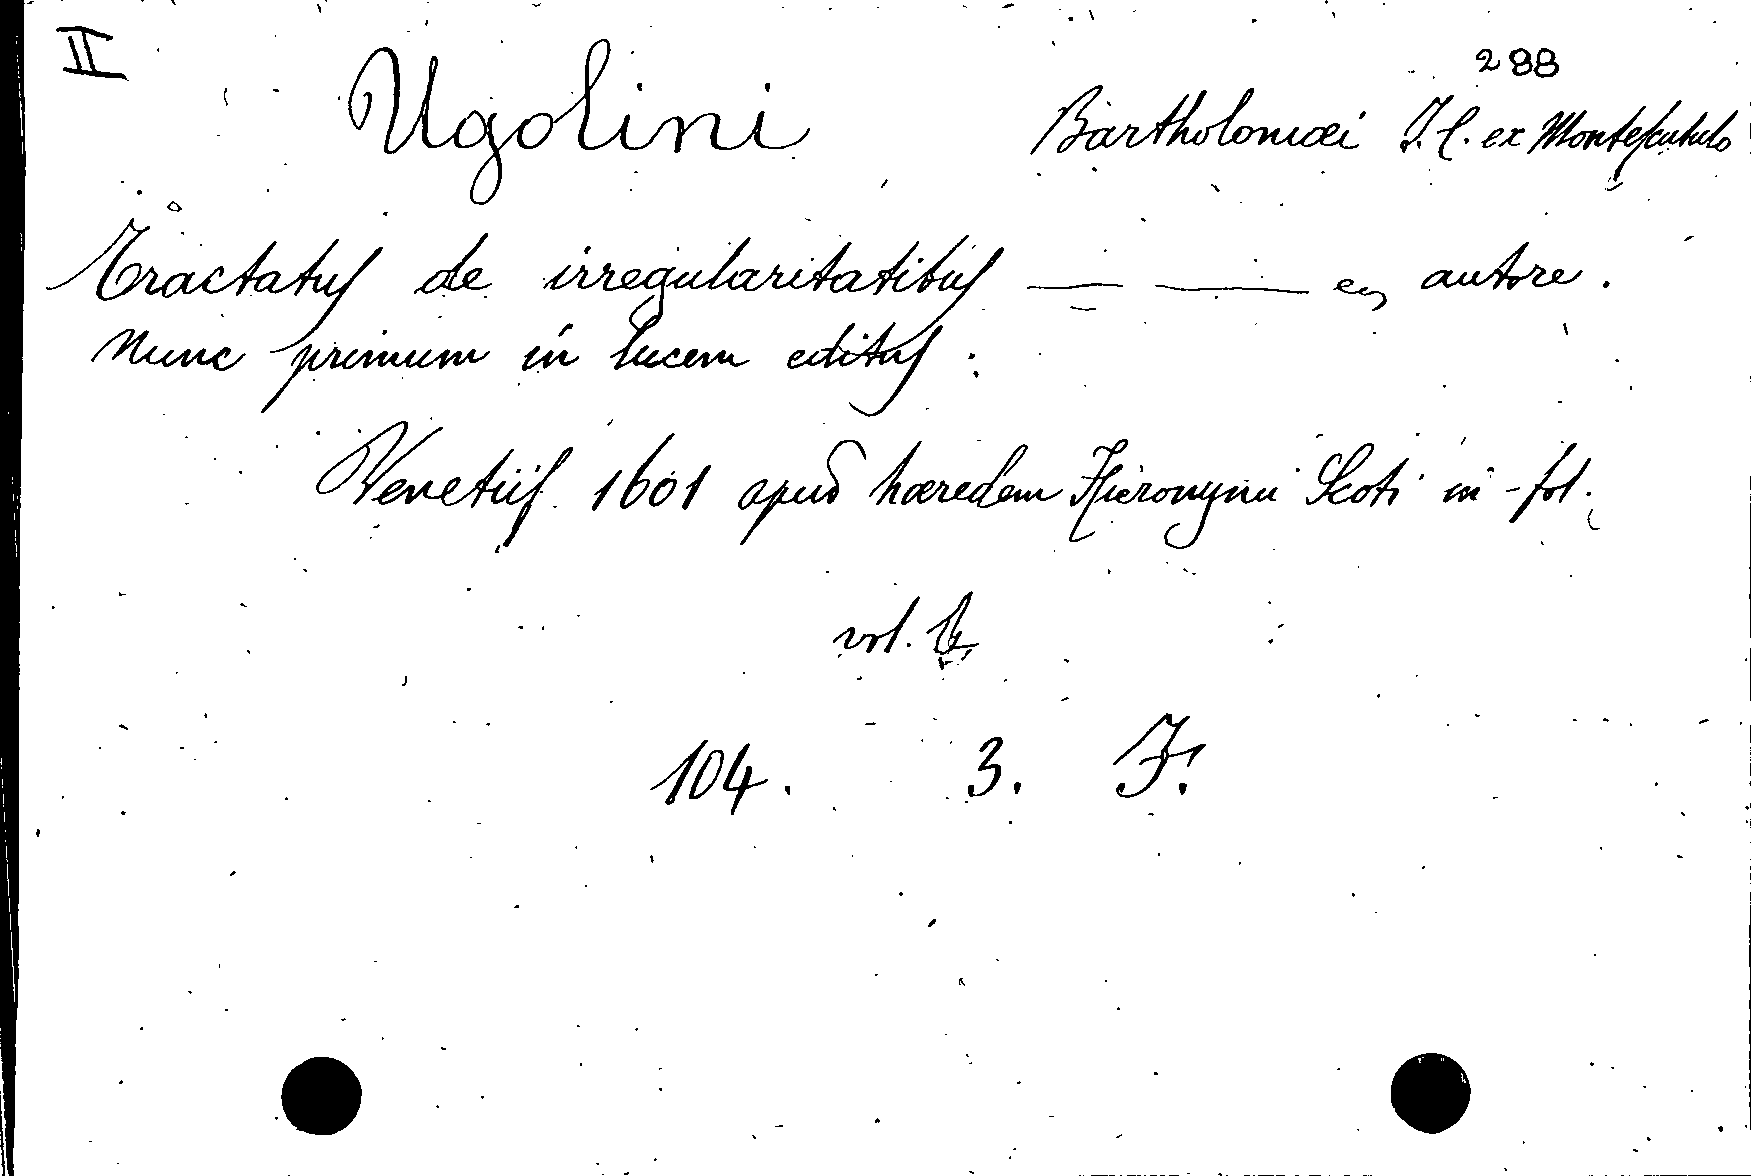 II
288
Ugolini Bartholomæi J. C. ex Montescutulo
Tractatus de irregularitatibus — — autore.
Nunc primum in lucem editus:
Venetiis 1601 apud hæredem Hieronymi Scoti in-fol.
vol.
104. 3. F.